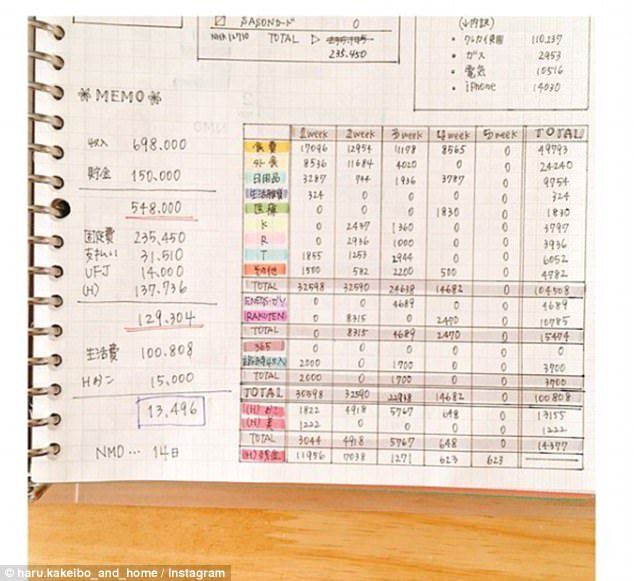 SAISONカード 0
TOTAL ▷ 235.450
235.450
(↓内訳)
110.237
・ガス 2953
・電気 10516
・iPhone 14030
❀MEMO❀
収入 698.000
貯金 150.000
548.000
固定費 235,450
支払い 31.510
UFJ 14.000
(H) 137.736
129.304
生活費 100.808
15,000
13,496
NMD… 14日
1week 2week 3week 4week 5week TOTAL
食費 17096 12954 11178 8565 0 49793
外食 8536 11684 4020 0 0 24240
日用品 3287 744 1936 3787 0 9754
生活雑貨 324 0 0 0 0 324
医療 0 0 0 1830 0 1830
K 0 2437 1360 0 0 3797
R 0 2936 1000 0 0 3936
T 1855 1253 2944 0 0 6052
その他 1500 582 2200 500 0 4782
TOTAL 32598 32590 24638 14682 0 104508
0 0 4689 0 0 4689
RAKUTEN 0 8315 0 2470 0 10785
TOTAL 0 8315 4689 2470 0 15474
365 0 0 0 0 0 0
2000 0 1700 0 0 3700
TOTAL 2000 0 1700 0 0 3700
TOTAL 30598 32590 22938 14682 0 100808
(H) 1822 4918 5767 648 0 13155
(H) 1222 0 0 0 0 1222
TOTAL 3044 4918 5767 648 0 14377
(H)残金 11956 7038 1271 623 623
© haru.kakeibo_and_home / Instagram